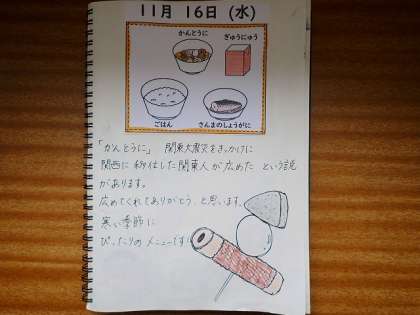 11月 16日 (水)
かんとうに
ぎゅうにゅう
ごはん
さんまのしょうがに
「かんとうに」 関東大震災をきっかけに
関西に移住した関東人が広めた という説
があります。
広めてくれてありがとう、と思います。
寒い季節に
ぴったりのメニューです!